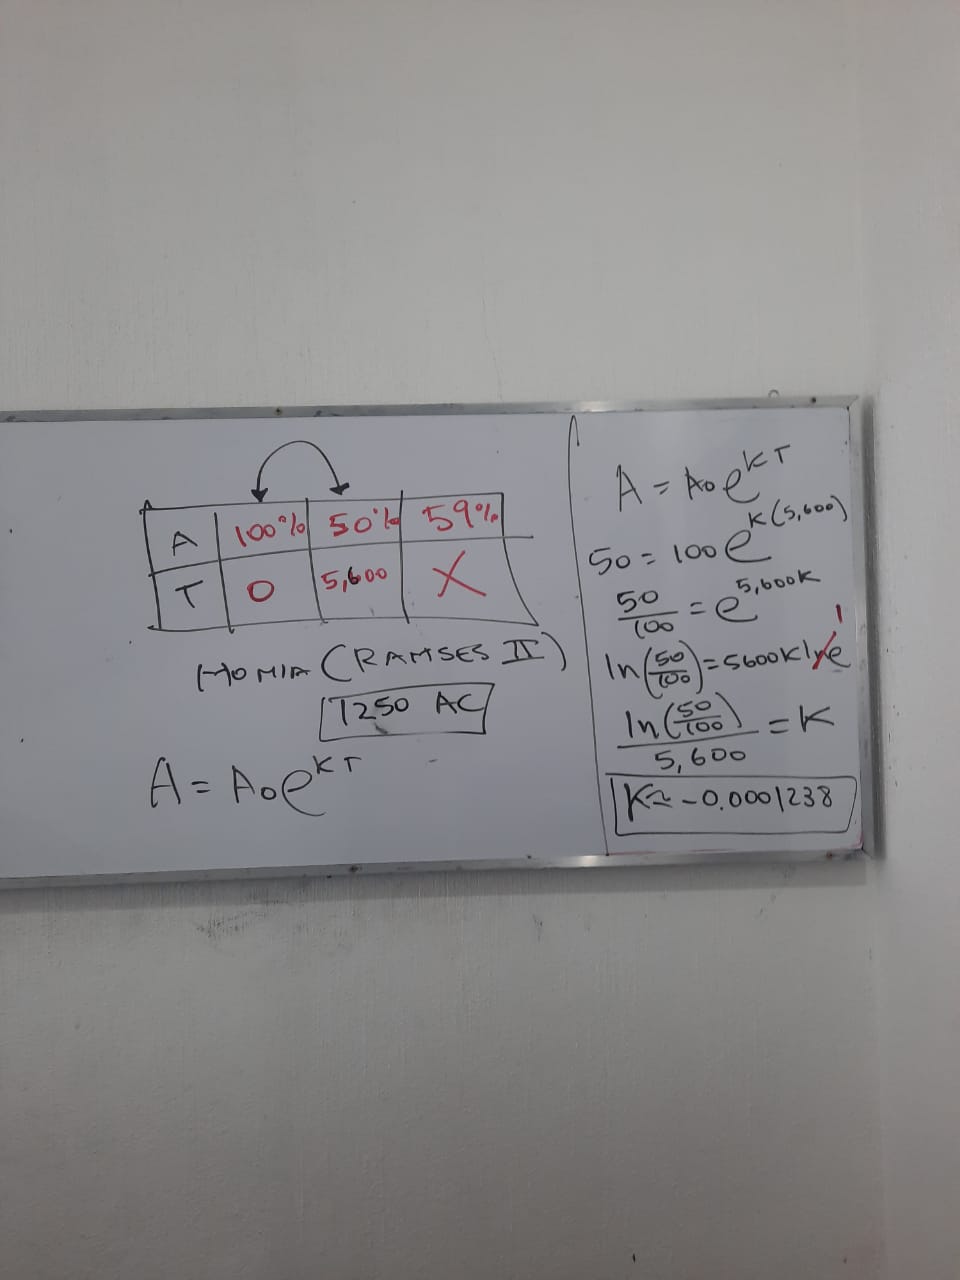 A | 100% | 50% | 59%
T | 0 | 5,600 | X
MOMIA (RAMSES II)
1250 AC
A = A₀e^KT
A = A₀e^KT
50 = 100e^K(5,600)
50/100 = e^5,600K
ln(50/100) = 5600K lne 1
ln(50/100)/5,600 = K
K≈ -0.0001238